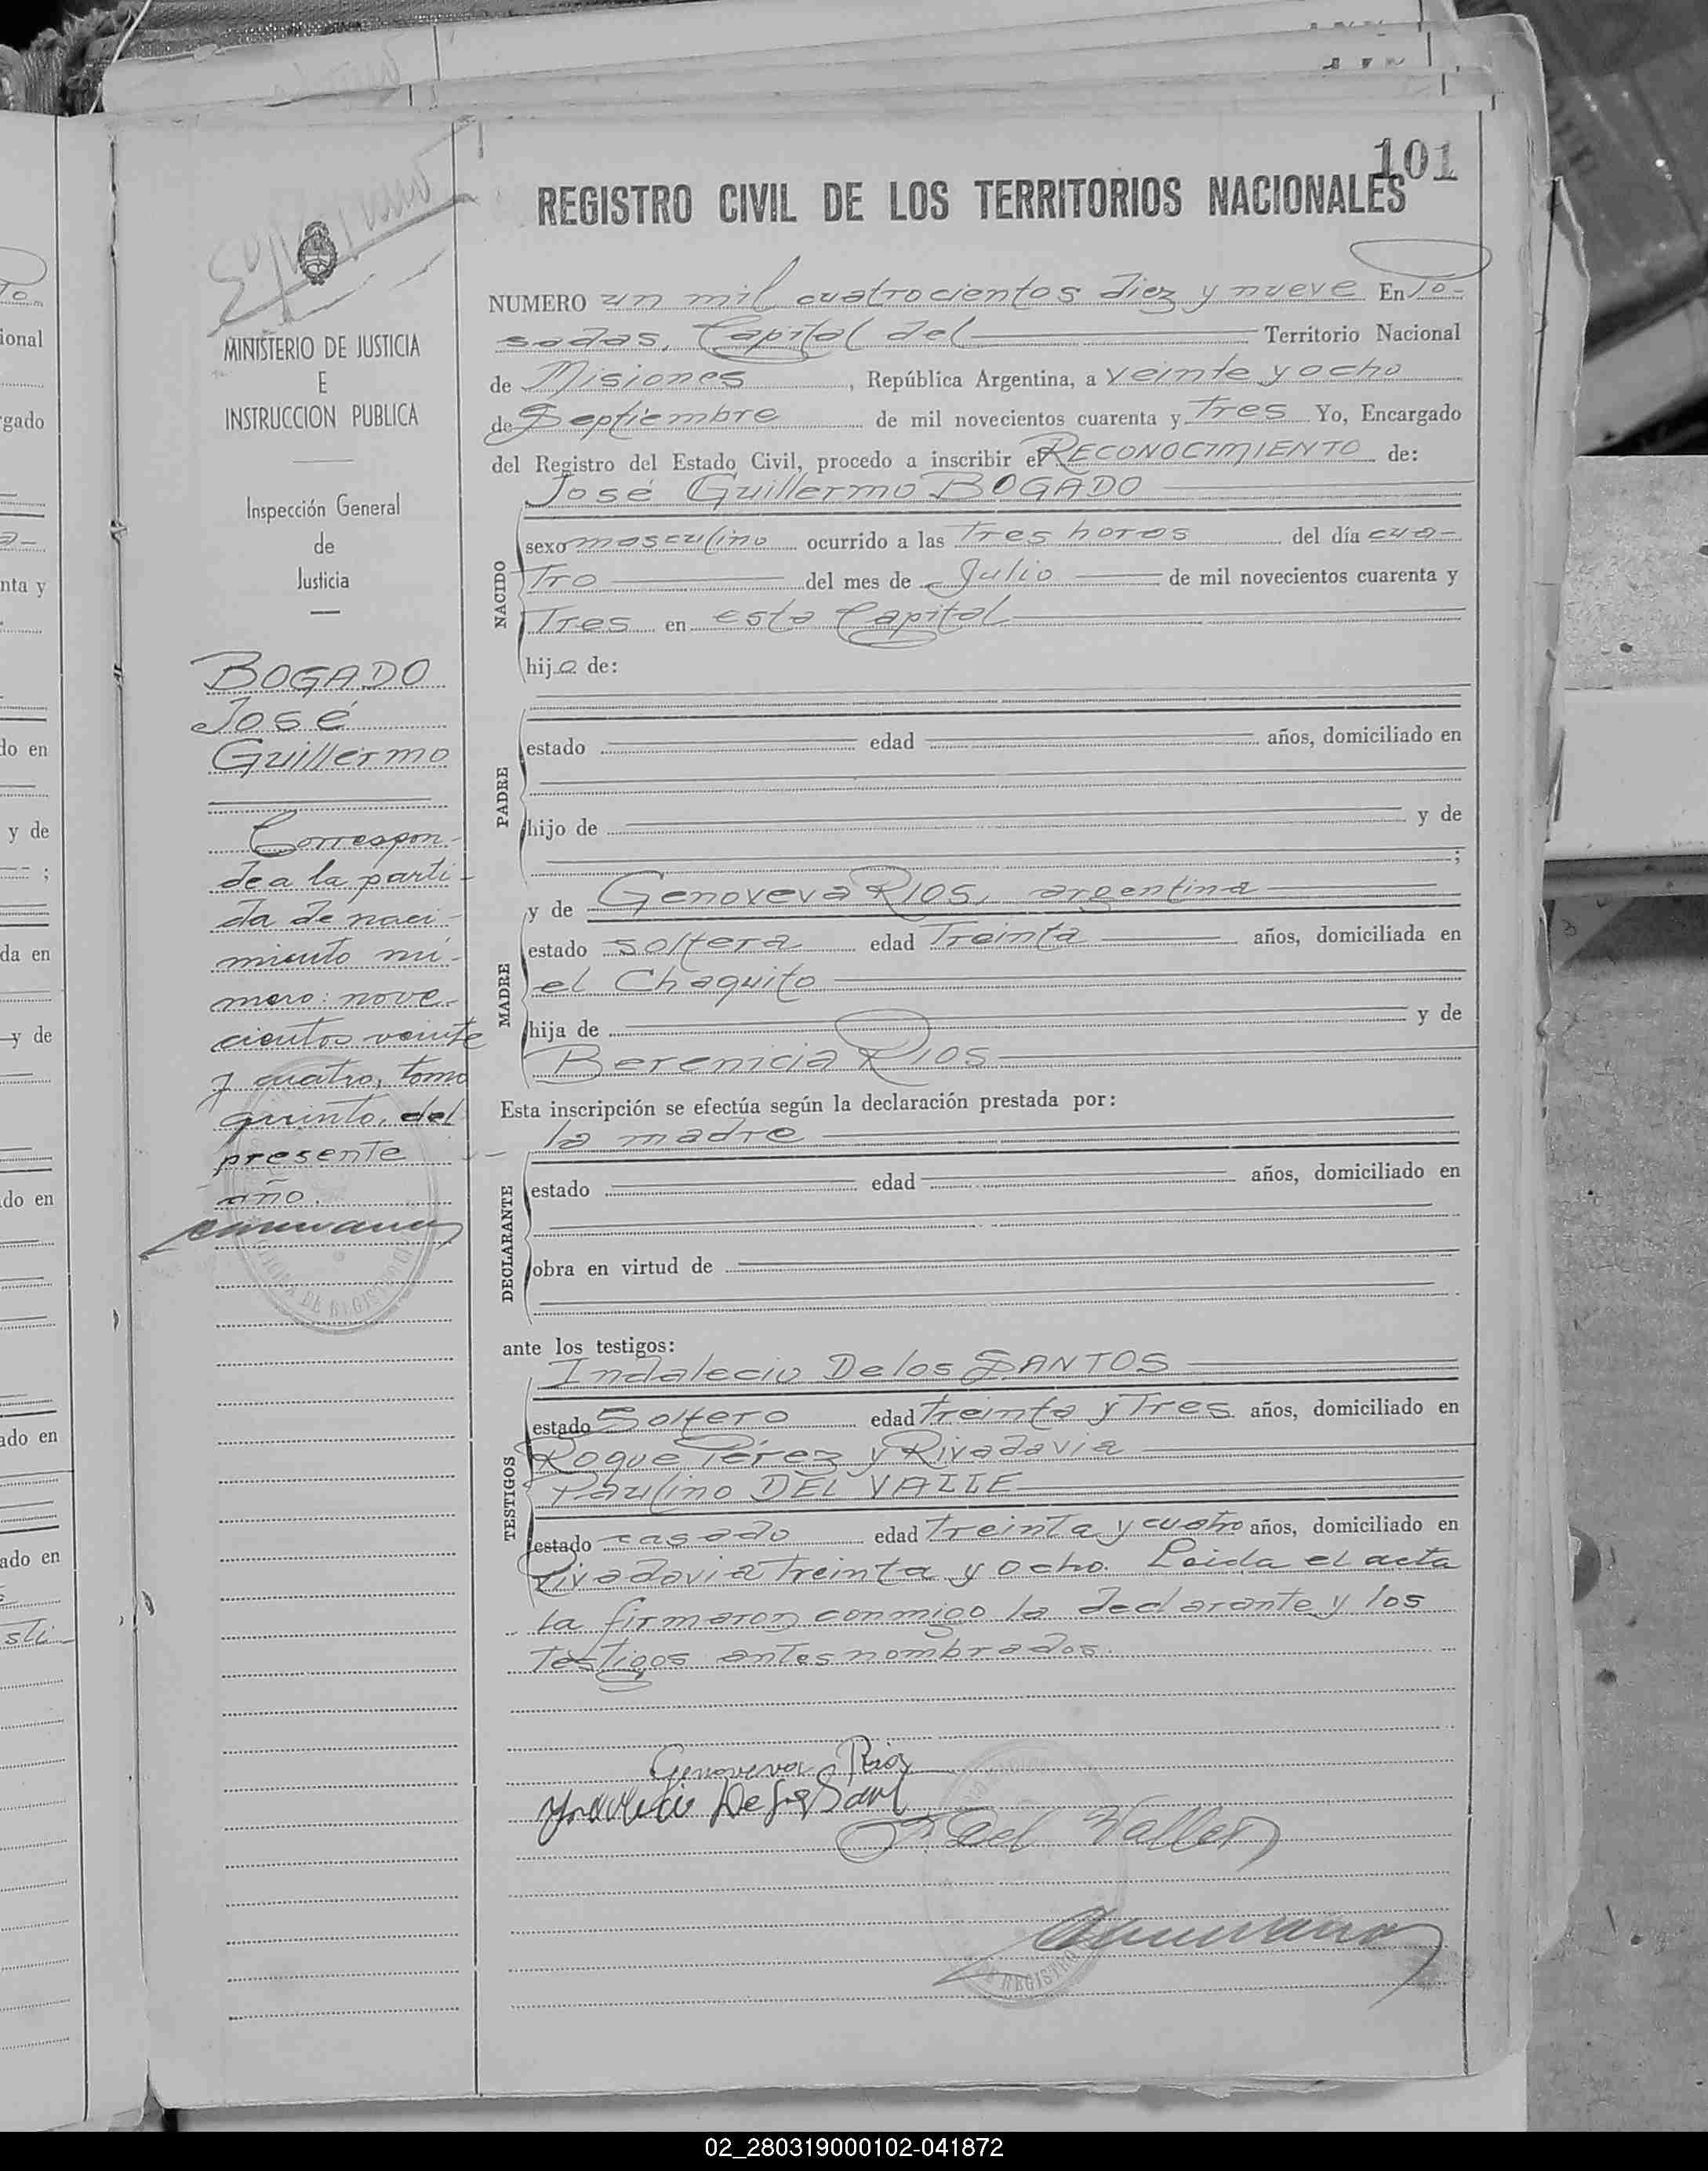 101
REGISTRO CIVIL DE LOS TERRITORIOS NACIONALES
MINISTERIO DE JUSTICIA
E
INSTRUCCION PUBLICA
Inspección General
de
Justicia
BOGADO
José
Guillermo
Correspon-
de a la parti-
da de naci-
miento nú-
mero: nove-
cientos veinte
y cuatro, tomo
quinto, del
presente
año.
NUMERO un mil cuatrocientos diez y nueve En Po-
sadas, Capital del Territorio Nacional
de Misiones, República Argentina, a veinte y ocho
de Septiembre de mil novecientos cuarenta y Tres Yo, Encargado
del Registro del Estado Civil, procedo a inscribir el RECONOCIMIENTO de:
José Guillermo BOGADO
NACIDO
sexo masculino ocurrido a las Tres horas del día cua-
Tro del mes de Julio de mil novecientos cuarenta y
Tres en esta Capital
hijo de:
PADRE
estado edad años, domiciliado en
hijo de y de
;
MADRE
y de Genoveva RIOS, argentina
estado soltera edad Treinta años, domiciliada en
el Chaquito
hija de y de
Berenicia RIOS
Esta inscripción se efectúa según la declaración prestada por:
la madre
DECLARANTE
estado edad años, domiciliado en
obra en virtud de
ante los testigos:
TESTIGOS
Indalecio De los SANTOS
estado Soltero edad Treinta y Tres años, domiciliado en
Roque Pérez y Rivadavia
Paulino DEL VALLE
estado casado edad Treinta y cuatro años, domiciliado en
Rivadavia Treinta y ocho. Leida el acta
la firmaron conmigo la declarante y los
Testigos antes nombrados.
Genoveva Rios
Indalecio De los Sant
P. Del Valle
DE REGISTRO
02_280319000102-041872